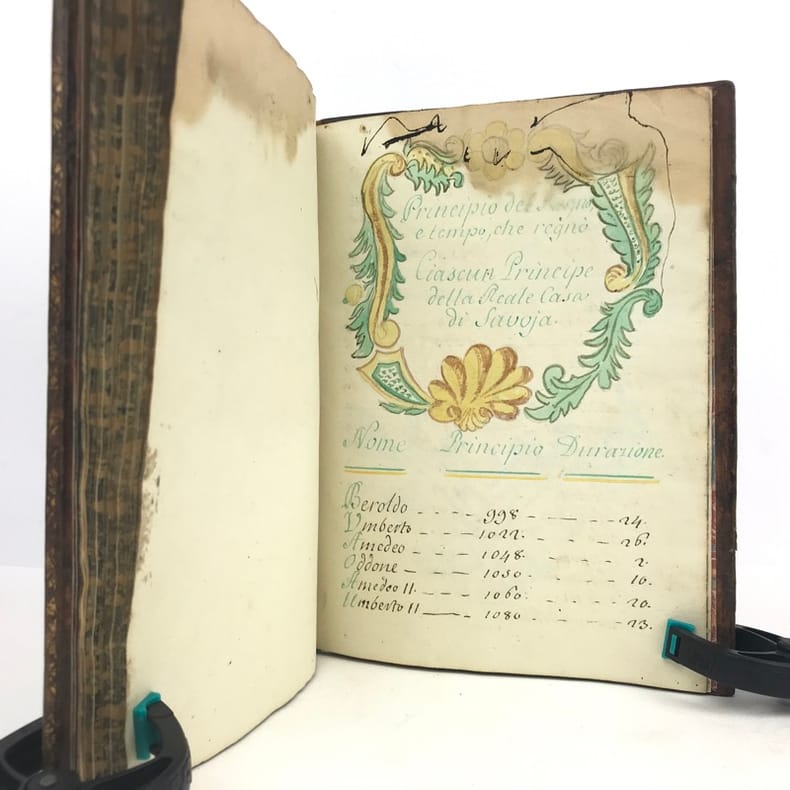 Principio del Regno,
e tempo, che regnò
Ciascun Principe
della Reale Casa
di Savoja.
Nome Principio Durazione.
Beroldo - - - - 998 - - - - - 24.
Vmberto - - - - 1022. - - - - 26.
Amedeo - - - - 1048. - - - - 2.
Oddone - - - - 1050. - - - - 10.
Amedeo II. - - - 1060. - - - - 20.
Umberto II - - - 1080. - - - - 23.